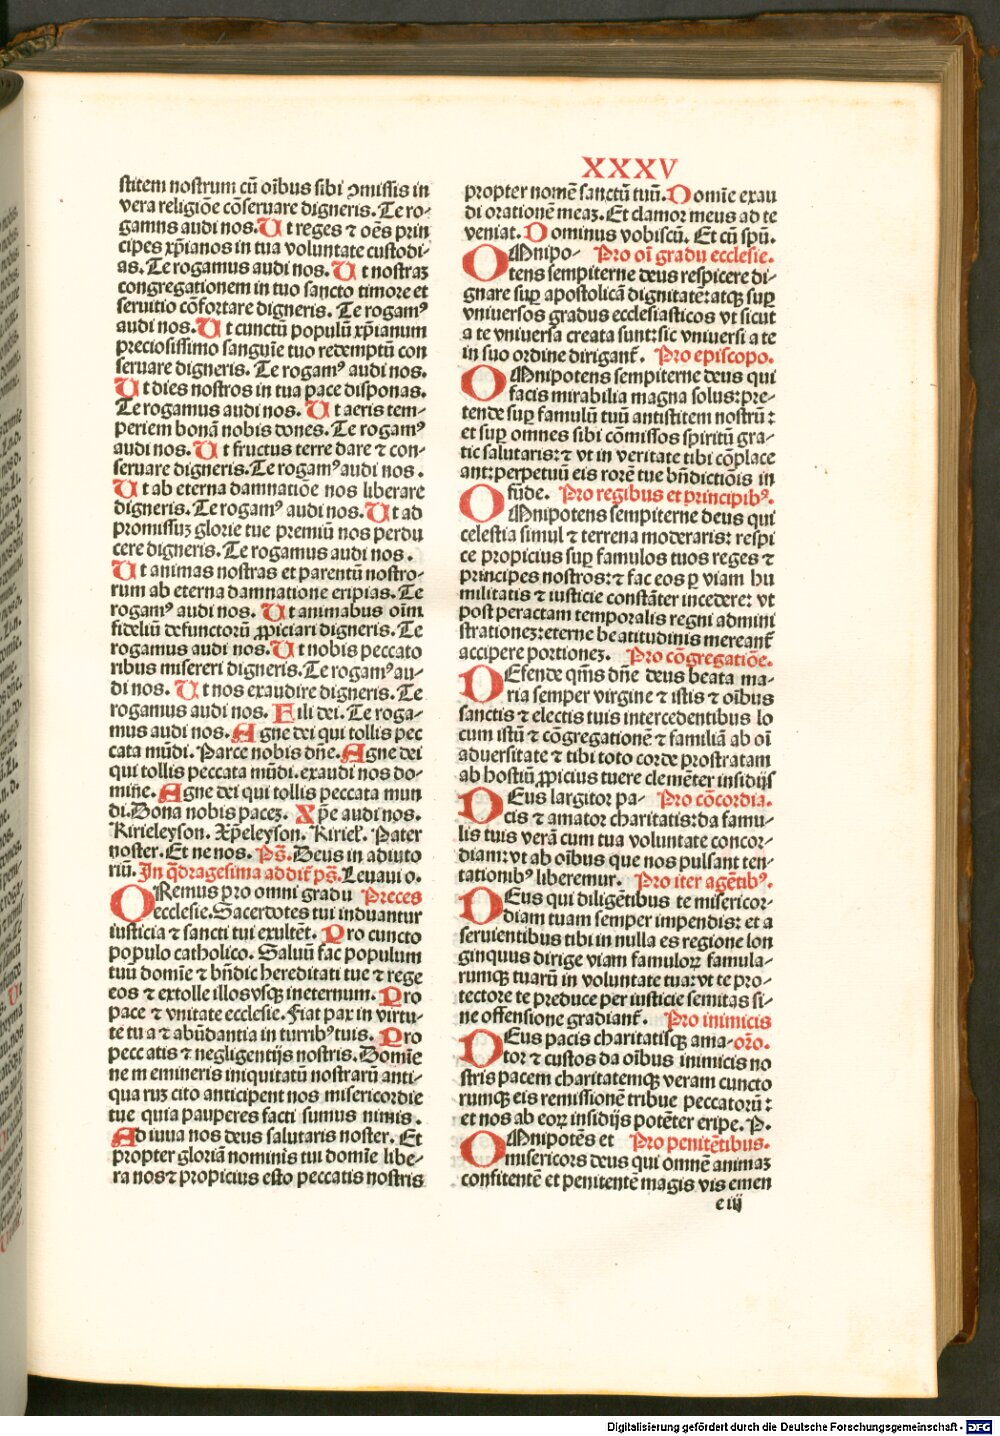 XXXV
stitem nostrum cū oībus sibi ꝯmissis in
vera religiōe cōseruare digneris. Te ro-
gamus audi nos. Ut reges ⁊ oēs prin
cipes xp̄ianos in tua voluntate custodi-
as. Te rogamus audi nos. Ut nostraꝫ
congregationem in tuo sancto timore et
seruitio cōfortare digneris. Te rogamꝰ
audi nos. Ut cunctū populū xp̄ianum
preciosissimo sanguīe tuo redemptū con
seruare digneris. Te rogamꝰ audi nos.
Ut dies nostros in tua pace disponas.
Te rogamus audi nos. Ut aeris tem-
periem bonā nobis dones. Te rogamꝰ
audi nos. Ut fructus terre dare ⁊ con-
seruare digneris. Te rogamꝰ audi nos.
Ut ab eterna damnatiōe nos liberare
digneris. Te rogamꝰ audi nos. Ut ad
promissuꝫ glorie tue premiū nos perdu
cere digneris. Te rogamus audi nos.
Ut animas nostras et parentū nostro-
rum ab eterna damnatione eripias. Te
rogamꝰ audi nos. Ut animabus oīm
fideliū defunctorū ꝓpiciari digneris. Te
rogamus audi nos. Ut nobis peccato
ribus misereri digneris. Te rogamꝰ au-
di nos. Ut nos exaudire digneris. Te
rogamus audi nos. Fili dei. Te roga-
mus audi nos. Agne dei qui tollis pec
cata mūdi. Parce nobis dn̄e. Agne dei
qui tollis peccata mūdi. exaudi nos do-
mine. Agne dei qui tollis peccata mun
di. Dona nobis paceꝫ. Xp̄e audi nos.
Kirieleyson. Xp̄eleyson. Kiriel. Pater
noster. Et ne nos. Ps̄. Deus in adiuto
riū. In q̄dragesima addit̄ ps̄. Leuaui o.
ORemus pro omni gradu Preces
ecclesie. Sacerdotes tui induantur
iusticia ⁊ sancti tui exultēt. Pro cuncto
populo catholico. Saluū fac populum
tuū domīe ⁊ bn̄dic hereditati tue ⁊ rege
eos ⁊ extolle illos vsqꝫ in eternum. Pro
pace ⁊ vnitate ecclesie. Fiat pax in virtu-
te tua ⁊ abūdantia in turribꝰ tuis. Pro
peccatis ⁊ negligentijs nostris. Domīe
ne memineris iniquitatū nostrarū anti-
quaruꝫ cito anticipent nos misericordie
tue quia pauperes facti sumus nimis.
Adiuua nos deus salutaris noster. Et
propter gloriā nominis tui domīe libe-
ra nos ⁊ propicius esto peccatis nostris
propter nomē sanctū tuū. Domīe exau
di orationē meaꝫ. Et clamor meus ad te
veniat. Dominus vobiscū. Et cū spū.
OMnipo- Pro oī gradu ecclesie.
tens sempiterne deus respicere di-
gnare suꝑ apostolicā dignitatē: atqꝫ suꝑ
vniuersos gradus ecclesiasticos vt sicut
a te vniuersa creata sunt: sic vniuersi a te
in suo ordine dirigant̄. Pro episcopo.
OMnipotens sempiterne deus qui
facis mirabilia magna solus: pre-
tende suꝑ famulū tuū antistitem nostrū:
et suꝑ omnes sibi cōmissos spiritū gra-
tie salutaris: ⁊ vt in veritate tibi cōplace
ant: perpetuū eis rorē tue bn̄dictiōis in
fūde. Pro regibus et principibꝰ.
OMnipotens sempiterne deus qui
celestia simul ⁊ terrena moderaris: respi
ce propicius suꝑ famulos tuos reges ⁊
principes nostros: ⁊ fac eos ꝑ viam hu
militatis ⁊ iusticie constāter incedere: vt
post peractam temporalis regni admini
strationeꝫ: eterne beatitudinis mereant̄
accipere portioneꝫ. Pro cōgregatiōe.
DEfende qm̄s dn̄e deus beata ma-
ria semper virgine ⁊ istis ⁊ oībus
sanctis ⁊ electis tuis intercedentibus lo
cum istū ⁊ cōgregationē ⁊ familiā ab oī
aduersitate ⁊ tibi toto corde prostratam
ab hostiū ꝓpicius tuere clemēter insidijs
DEus largitor pa- Pro cōcordia.
cis ⁊ amator charitatis: da famu-
lis tuis verā cum tua voluntate concor-
diam: vt ab oībus que nos pulsant ten-
tationibꝰ liberemur. Pro iter agētibꝰ.
DEus qui diligētibus te misericor-
diam tuam semper impendis: et a
seruientibus tibi in nulla es regione lon
ginquus dirige viam famuloꝝ famula-
rumqꝫ tuarū in voluntate tua: vt te pro-
tectore te preduce per iusticie semitas si-
ne offensione gradiant̄. Pro inimicis
DEus pacis charitatisqꝫ ama- oro.
tor ⁊ custos da oībus inimicis no
stris pacem charitatemqꝫ veram cuncto
rumqꝫ eis remissionē tribue peccatorū:
et nos ab eoꝝ insidijs potēter eripe. P.
OMnipotēs et Pro penitētibus.
misericors deus qui omnē animaꝫ
confitentē et penitentē magis vis emen
e iij
Digitalisierung gefördert durch die Deutsche Forschungsgemeinschaft - DFG